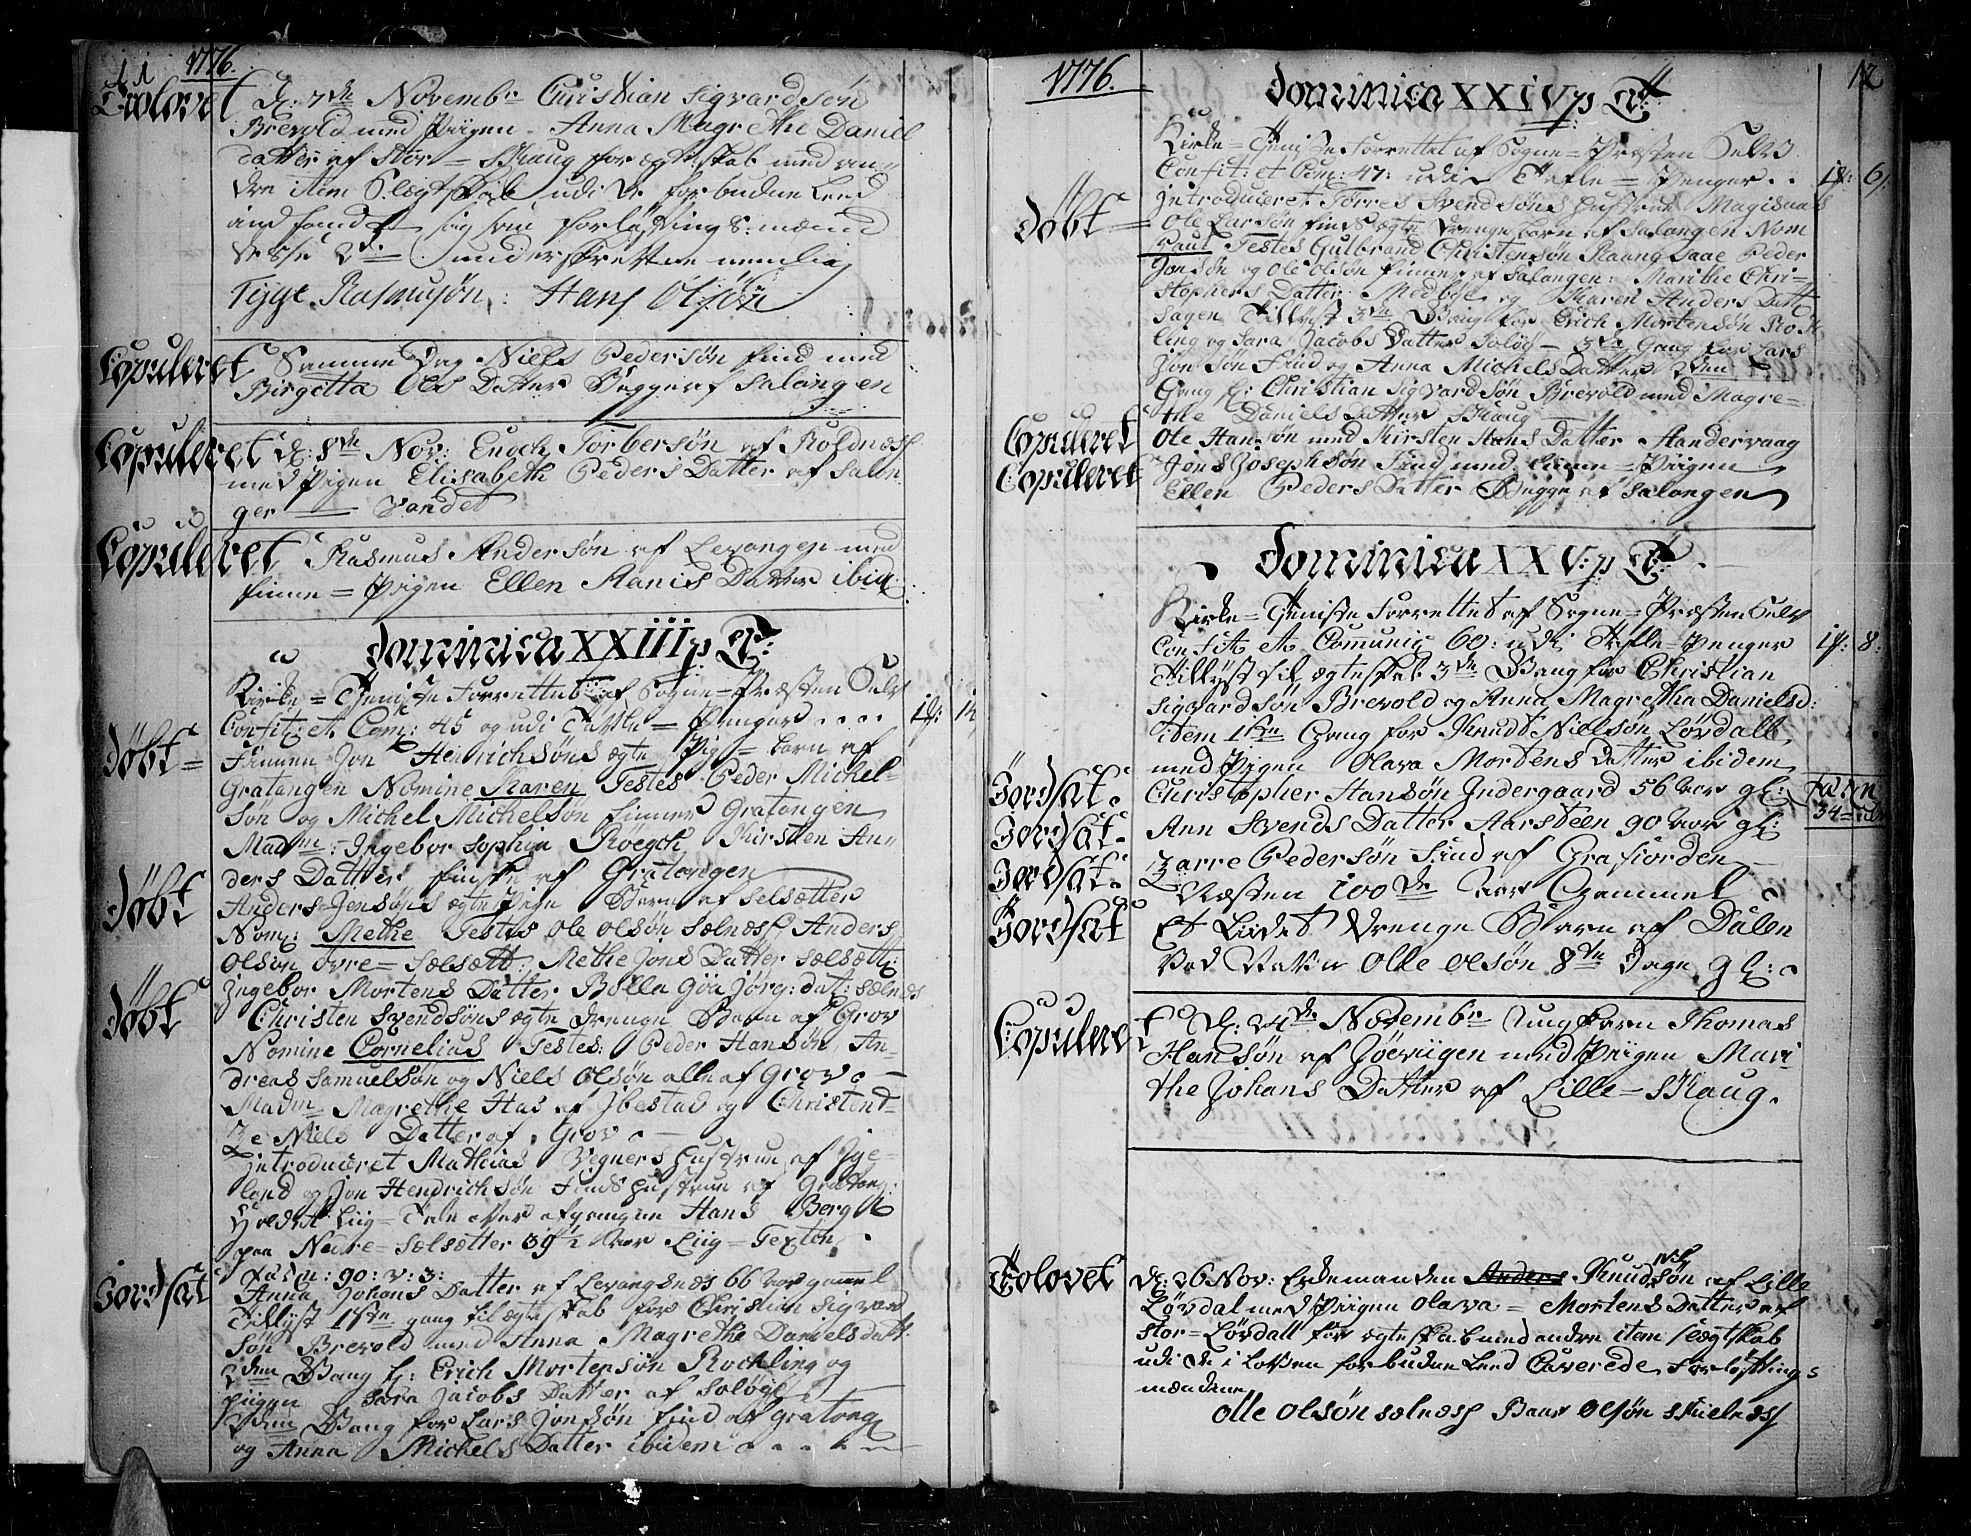 11 1776.
Trolovet D: 7de Novembr Christian Sigvardsøn
Brevold med Piigen Anna Magrethe Daniel
datter af Stor = Skaug for ægteskab med
item Slægtskab udi de forbudne Leed
indfandt sig som Forløftings: mænd
disse 2de underskrevne nemlig
Tyge Rasmusøn: Hans Olsøn
Copuleret Samme Dag Niels Pedersøn Find med
Birgitta Ols Datter Bygge af Salangen
Copuleret D: 8de Nov: Enoch Torbersøn af
med Pigen Elisabeth Peders Datter af Salan
ger Vandet
Copuleret Rasmus Andersøn af Levangen med
finne = Piigen Ellen Datter ibid:
Dominica XXIII p T:
Kirke = Tieniste Forrettet af Sogne = Præsten Selv
Confit: et Com: 45 og udi Tavle = Penger
Døbt = Finnen Jon Henrichsøns ægte Pige = barn af
Gratangen Nomine Karen Testes Peder Michel-
søn og Michel Michelsøn finner Gratangen
Madm: Ingebor Sophia Kirsten An
ders Datter finske af Gratangen
Døbt Anders Jensøns ægte Pige Barn af Selsætter
Nom: Methe Testes Ole Olsøn Sælnæss Anders
Olsøn Øvre = Sælsætt: Methe Jons Datter Sælsætt:
Ingebor Mortens Datter
Døbt Christen Svendsøns ægte Drenge Barn af Grov
Nomine Cornelius Testes: Peder Hansøn, An-
dreas Samuelsøn og Niels Olsøn alle af Grov
Madm Magrethe Has af Ibestad og Christend-
ze Niels Datter af Grov
Introduceret Mathias Vegners Hustrue af
land og Jon Hendrichsøn Finds Hustrue af Gratang:
Holdt Liig = Tale over afgangne Hans Berg
paa Nedre = Sælsætter 39½ Aar Liig = Texten
90: v: 3:
Jordsat Anna Johans Datter af Levangsnæs 66 Aar gamel
Tillyst 1ste gang til ægteskab for Christian Sigvard
søn Brevold med Anna Magrethe Daniels datt:
2den Gang f: Erich Mortensøn Rochling og
piigen Sara Jacobs Datter af Soløye
2den Gang for Lars Jonsøn Find af Gratang
og Anna Michels Datter ibidem
1776. 12
Dominica XXIV p T:
Kirke = Tieniste Forrettet af Sogne = Præsten Selv
Confit: et Com: 47: udi Tavle = Penger
Introduceret Torres Svendsøns Hustrue
Døbt = Ole Larsøn Finds ægte Drenge barn af Salangen Nom
Paul Testes Gulbrand Christensøn Peder
Jonsøn og Ole Olsøn finner af Salangen: Marithe Chri-
stophers Datter Medbye og Karen Anders Datt
Sagen Tillyst 3die Gang for Erich Mortensøn Roch
ling og Sara Jacobs Datter Soløy 3die Gang for Lars
Jonsøn Find og Anna Michels Datter 2den
Gang f: Christian Sigvardsøn Brevold med Magre-
the Daniels Datter Skaug
Copuleret Ole Hansøn med Kirsten Hans Datter Handervaag
Copuleret Jons Josephsøn Find med finne = Piigen
Ellen Peders Datter Bygge af Salangen
Dominica XXV: p T:
Kirke = Tieniste Forrettet af Sogne = Præsten Selv
Confit et Comunic 60: udi Tavle = Penger
Tillyst til ægteskab 3die Gang for Christian
Sigvardsøn Brevold og Anna Magretha Danielsd:
item 1ste Gang for Knudt Nielsøn Løvdall
med Pigen Olava Mortens Datter ibidem
Jordsat. Christopher Hansøn Indergaard 56 Aar gl:
Jordsat. Ann Svends Datter Aarsteen 90 Aar gl:
Jordsat. Zarre Pedersøn Find af Grafiorden
Næsten 100de Aar Gammel
Jordsat Et Lidet Drenge Barn af Dalen
Ved Navn Olle Olsøn 8te Dage gl:
Copuleret D: 24de Novembr Ungkarn Thomas
Hansøn af med Piigen Mari
the Johans Datter af Lille = Skaug.
Trolovet D: 26 Nov: Enkemanden Anders Knud Nilsøn af Lille
Løvdal med Piigen Olava = Mortens Datter af
Stor = Løvdall for ægteskab med andre item Slægtskab
udi de i Loven forbudne Leed Caverede Forløftnings
mændene
Olle Olsøn Sælnæss Olsøn Skielnæss